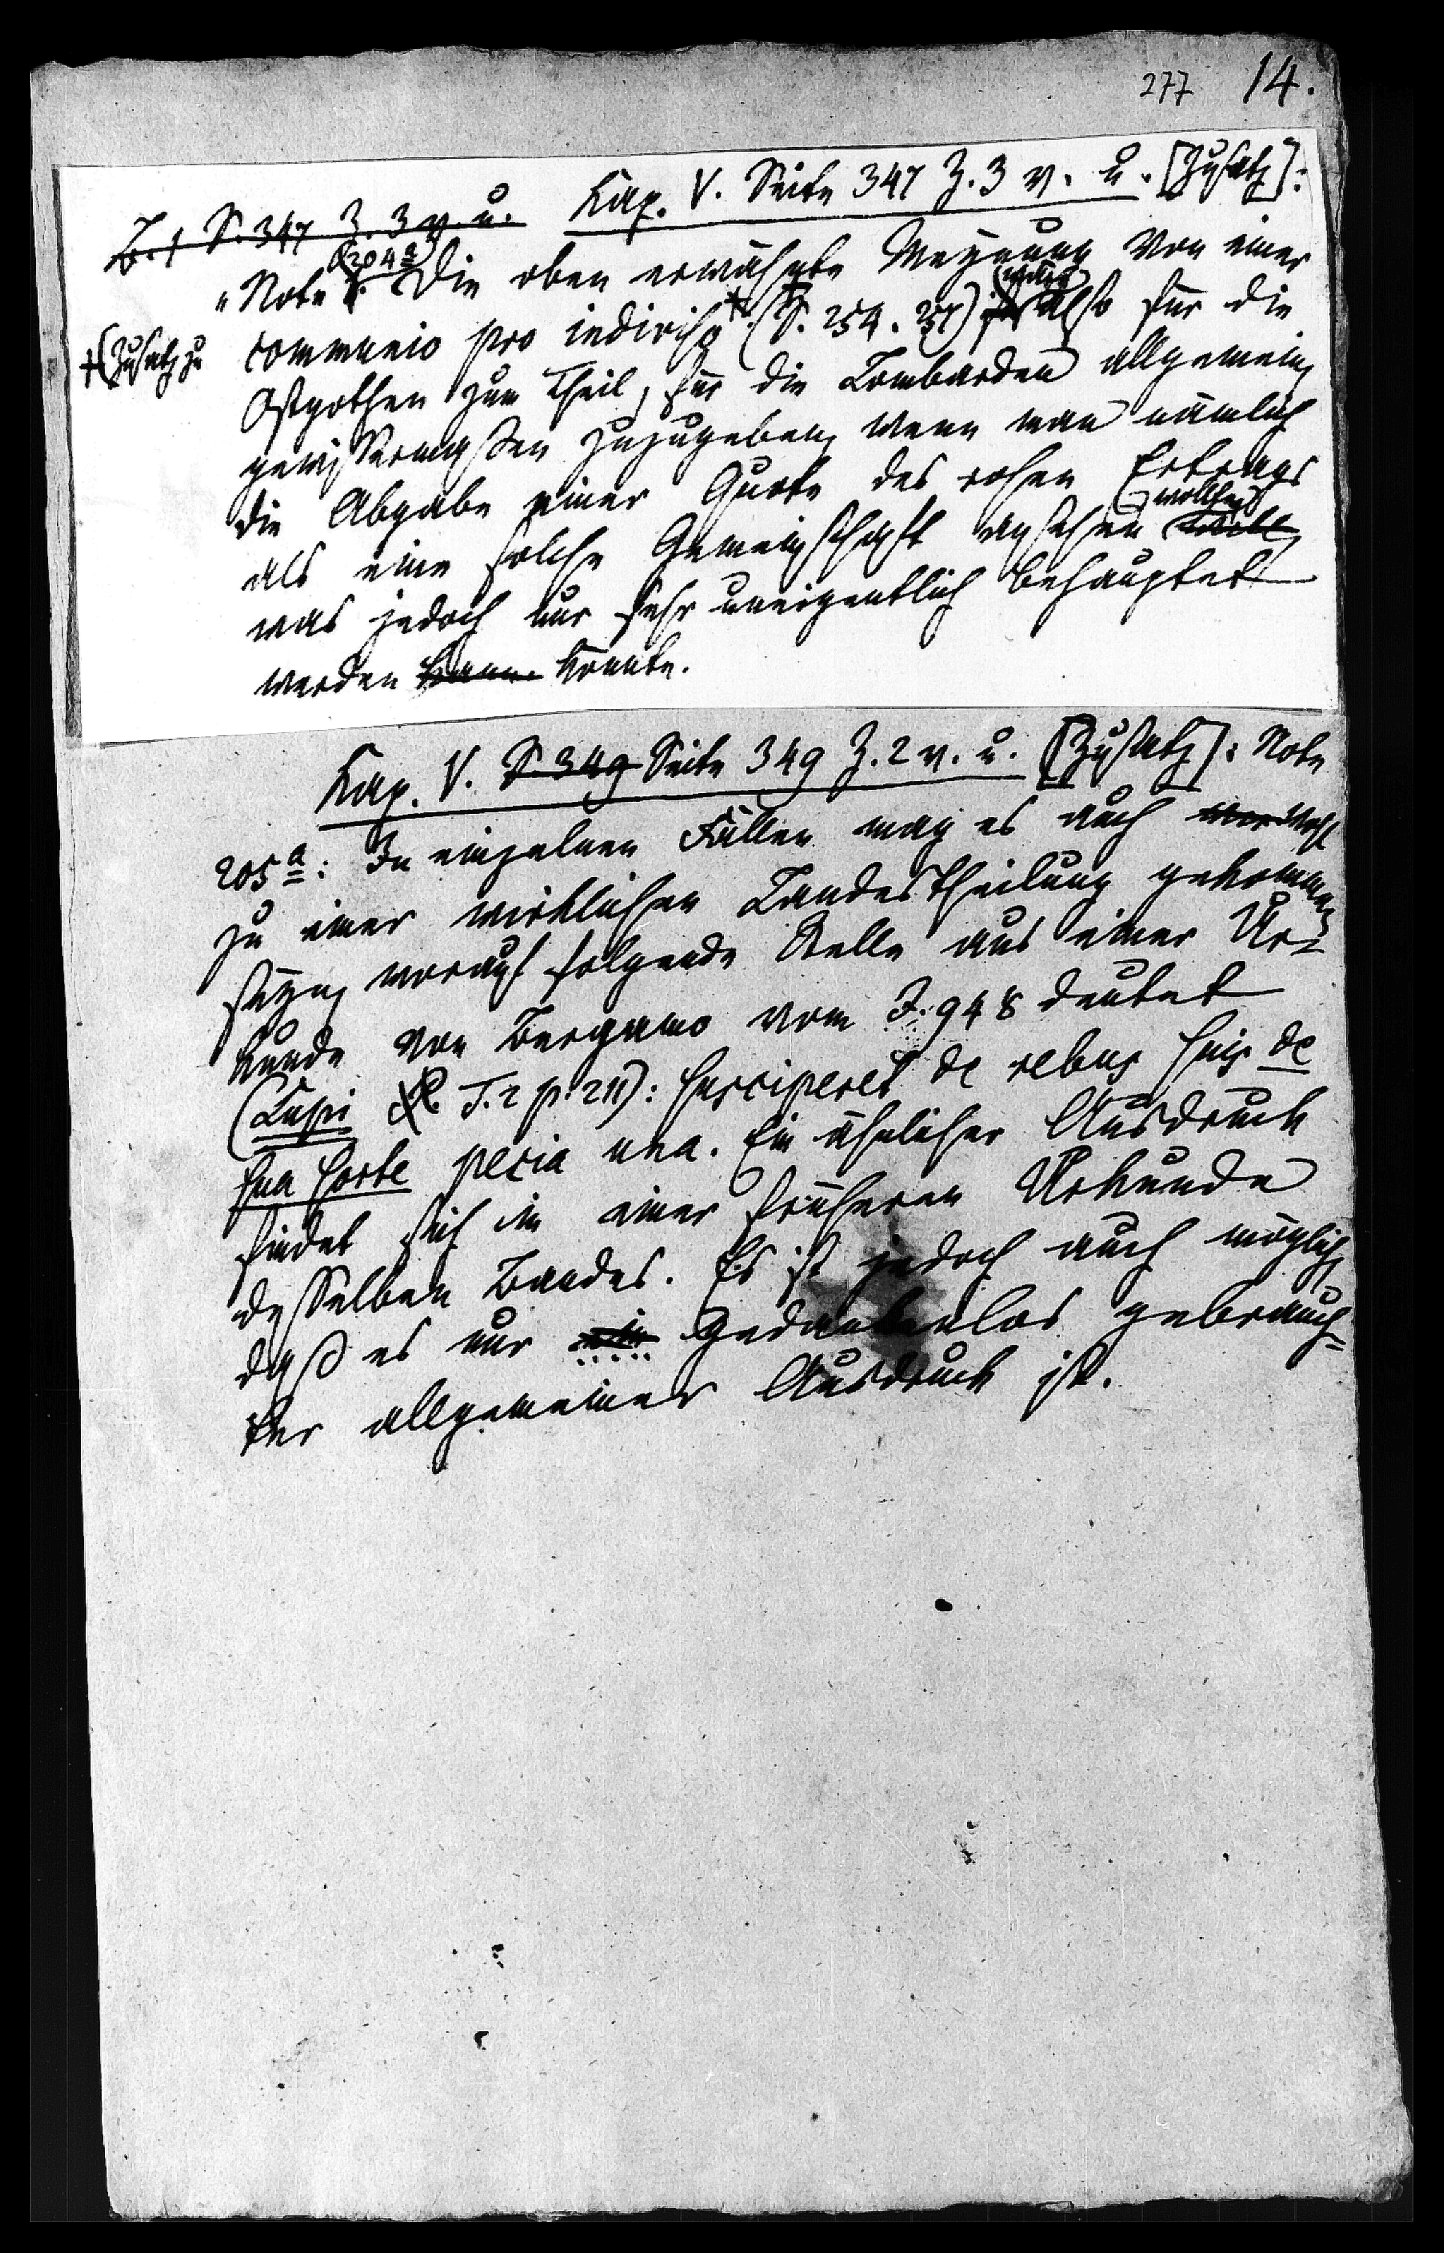 277 14.
B. 1 S. 347 Z. 3 v. u. Kap. V. Seite 347 Z. 3 v. u. [Zusatz]:
204a
„Note Die oben erwähnte Meynung von einer
wäre
+(Zusatz zu communio pro indiviso (S. 254. 257) ist also für die
Ostgothen zum Theil, für die Lombarden allgemein
gewissermaßen zuzugeben, wenn man nämlich
die Abgabe einer Quote des rohen Ertrags
wollte,
als eine solche Gemeinschaft ansehen will,
was jedoch nur sehr uneigentlich behauptet
werden kann. könnte.
Kap. V. S. 349 Seite 349 Z. 2 v. u. [Zusatz]: Note
205a: In einzelnen Fällen mag es auch wohl
zu einer wirklichen Landestheilung gekommen
seyn, worauf folgende Stelle aus einer Ur-
kunde von Bergamo vom J. 948 deutet
(Lupi T. 2 p. 211): susciperet de rebus suis de
sua sorte pecia una. Ein ähnlicher Ausdruck
findet sich in einer früheren Urkunde
desselben Bandes. Es ist jedoch auch möglich,
daß es nur ein gedankenlos gebrauch-
ter allgemeiner Ausdruck ist.